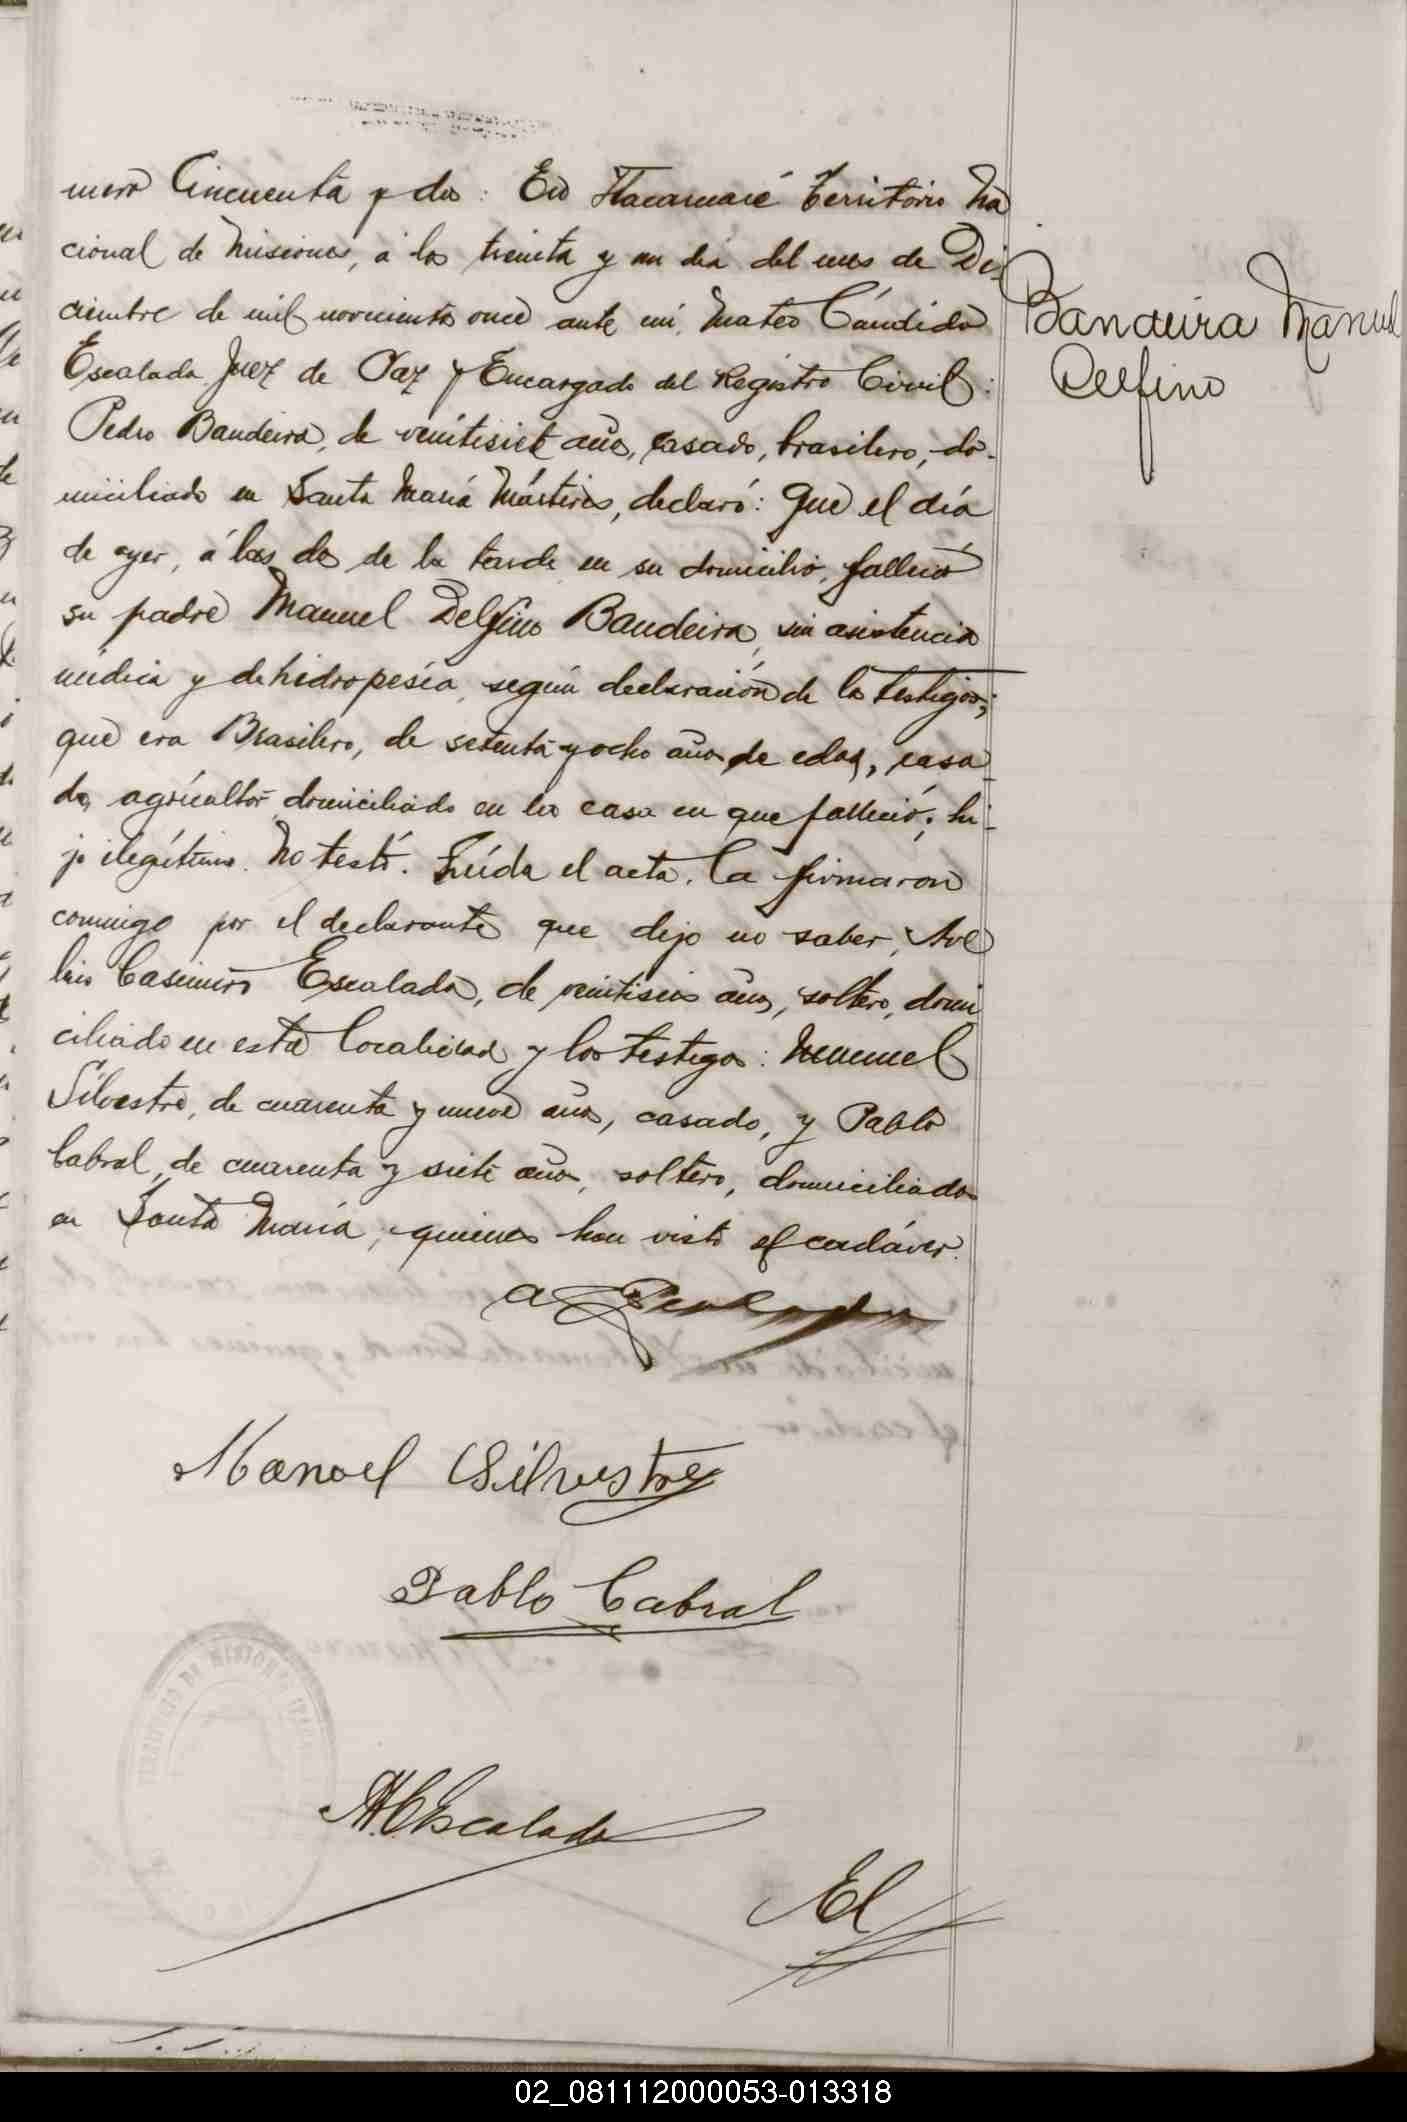 mero Cincuenta y dos: En Itacaruaré Territorio Na
cional de Misiones, á los treinta y un dia del mes de Di-
ciembre de mil novecientos once ante mi, Mateo Cándido
Escalada Juez de Paz y Encargado del Registro Civil:
Pedro Bandeira, de veintisiete años, casado, brasilero, do-
miciliado en Santa María Mártires, declaró: Que el día
de ayer, á las dos de la tarde en su domicilio, falleció
su padre Manuel Delfino Bandeira, sin asistencia
médica y de hidropesía, según declaración de los testigos;
que era Brasilero, de setenta y ocho años de edad, casa
do, agricultor domiciliado en la casa en que falleció; hi-
jo ilegítimo. No testó. Leída el acta, la firmaron
conmigo por el declarante que dijo no saber,
Casimiro Escalada, de veintiseis años, soltero, domi
ciliado en esta localidad y los testigos: Manuel
Silvestre, de cuarenta y nueve años, casado, y Pablo
Cabral, de cuarenta y siete años, soltero, domiciliados
en Santa María, quienes han visto el cadáver.
Bandeira Manuel
Delfino
A Escalada
Manoel Silvestre
Pablo Cabral
TERRITORIO DE MISIONES
M. C. Escalada
02_081112000053-013318